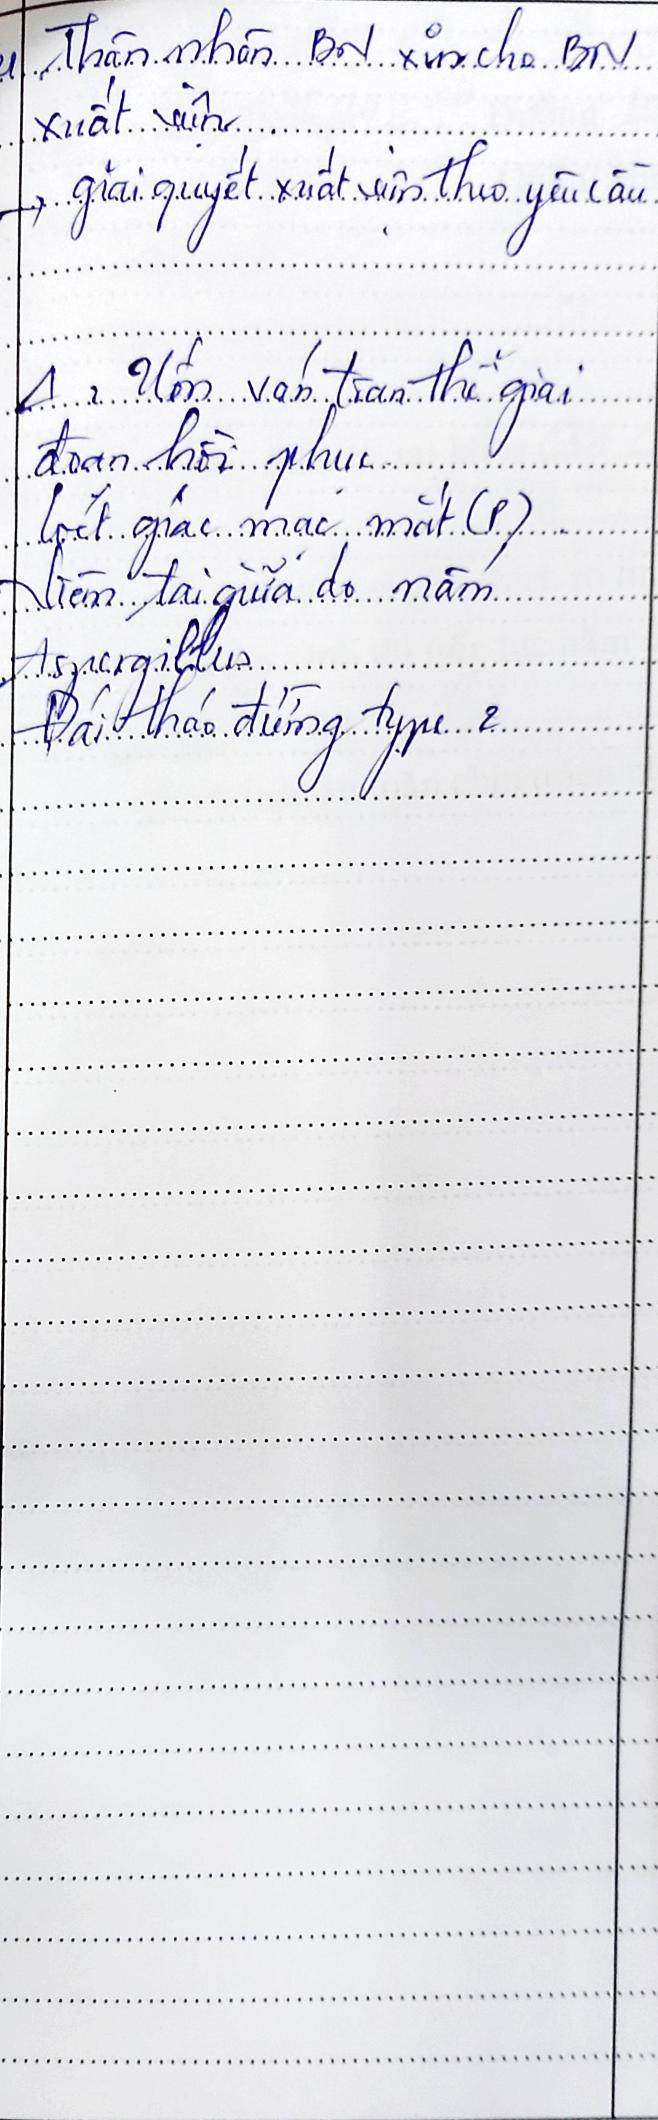 Thân nhân BN xin cho BN
xuất viện
→ giải quyết xuất viện theo yêu cầu
Δ: Uốn ván toàn thể giai
đoạn hồi phục
loét giác mạc mắt (P)
Viêm tai giữa do nấm
Aspergillus
Đái tháo đường type 2